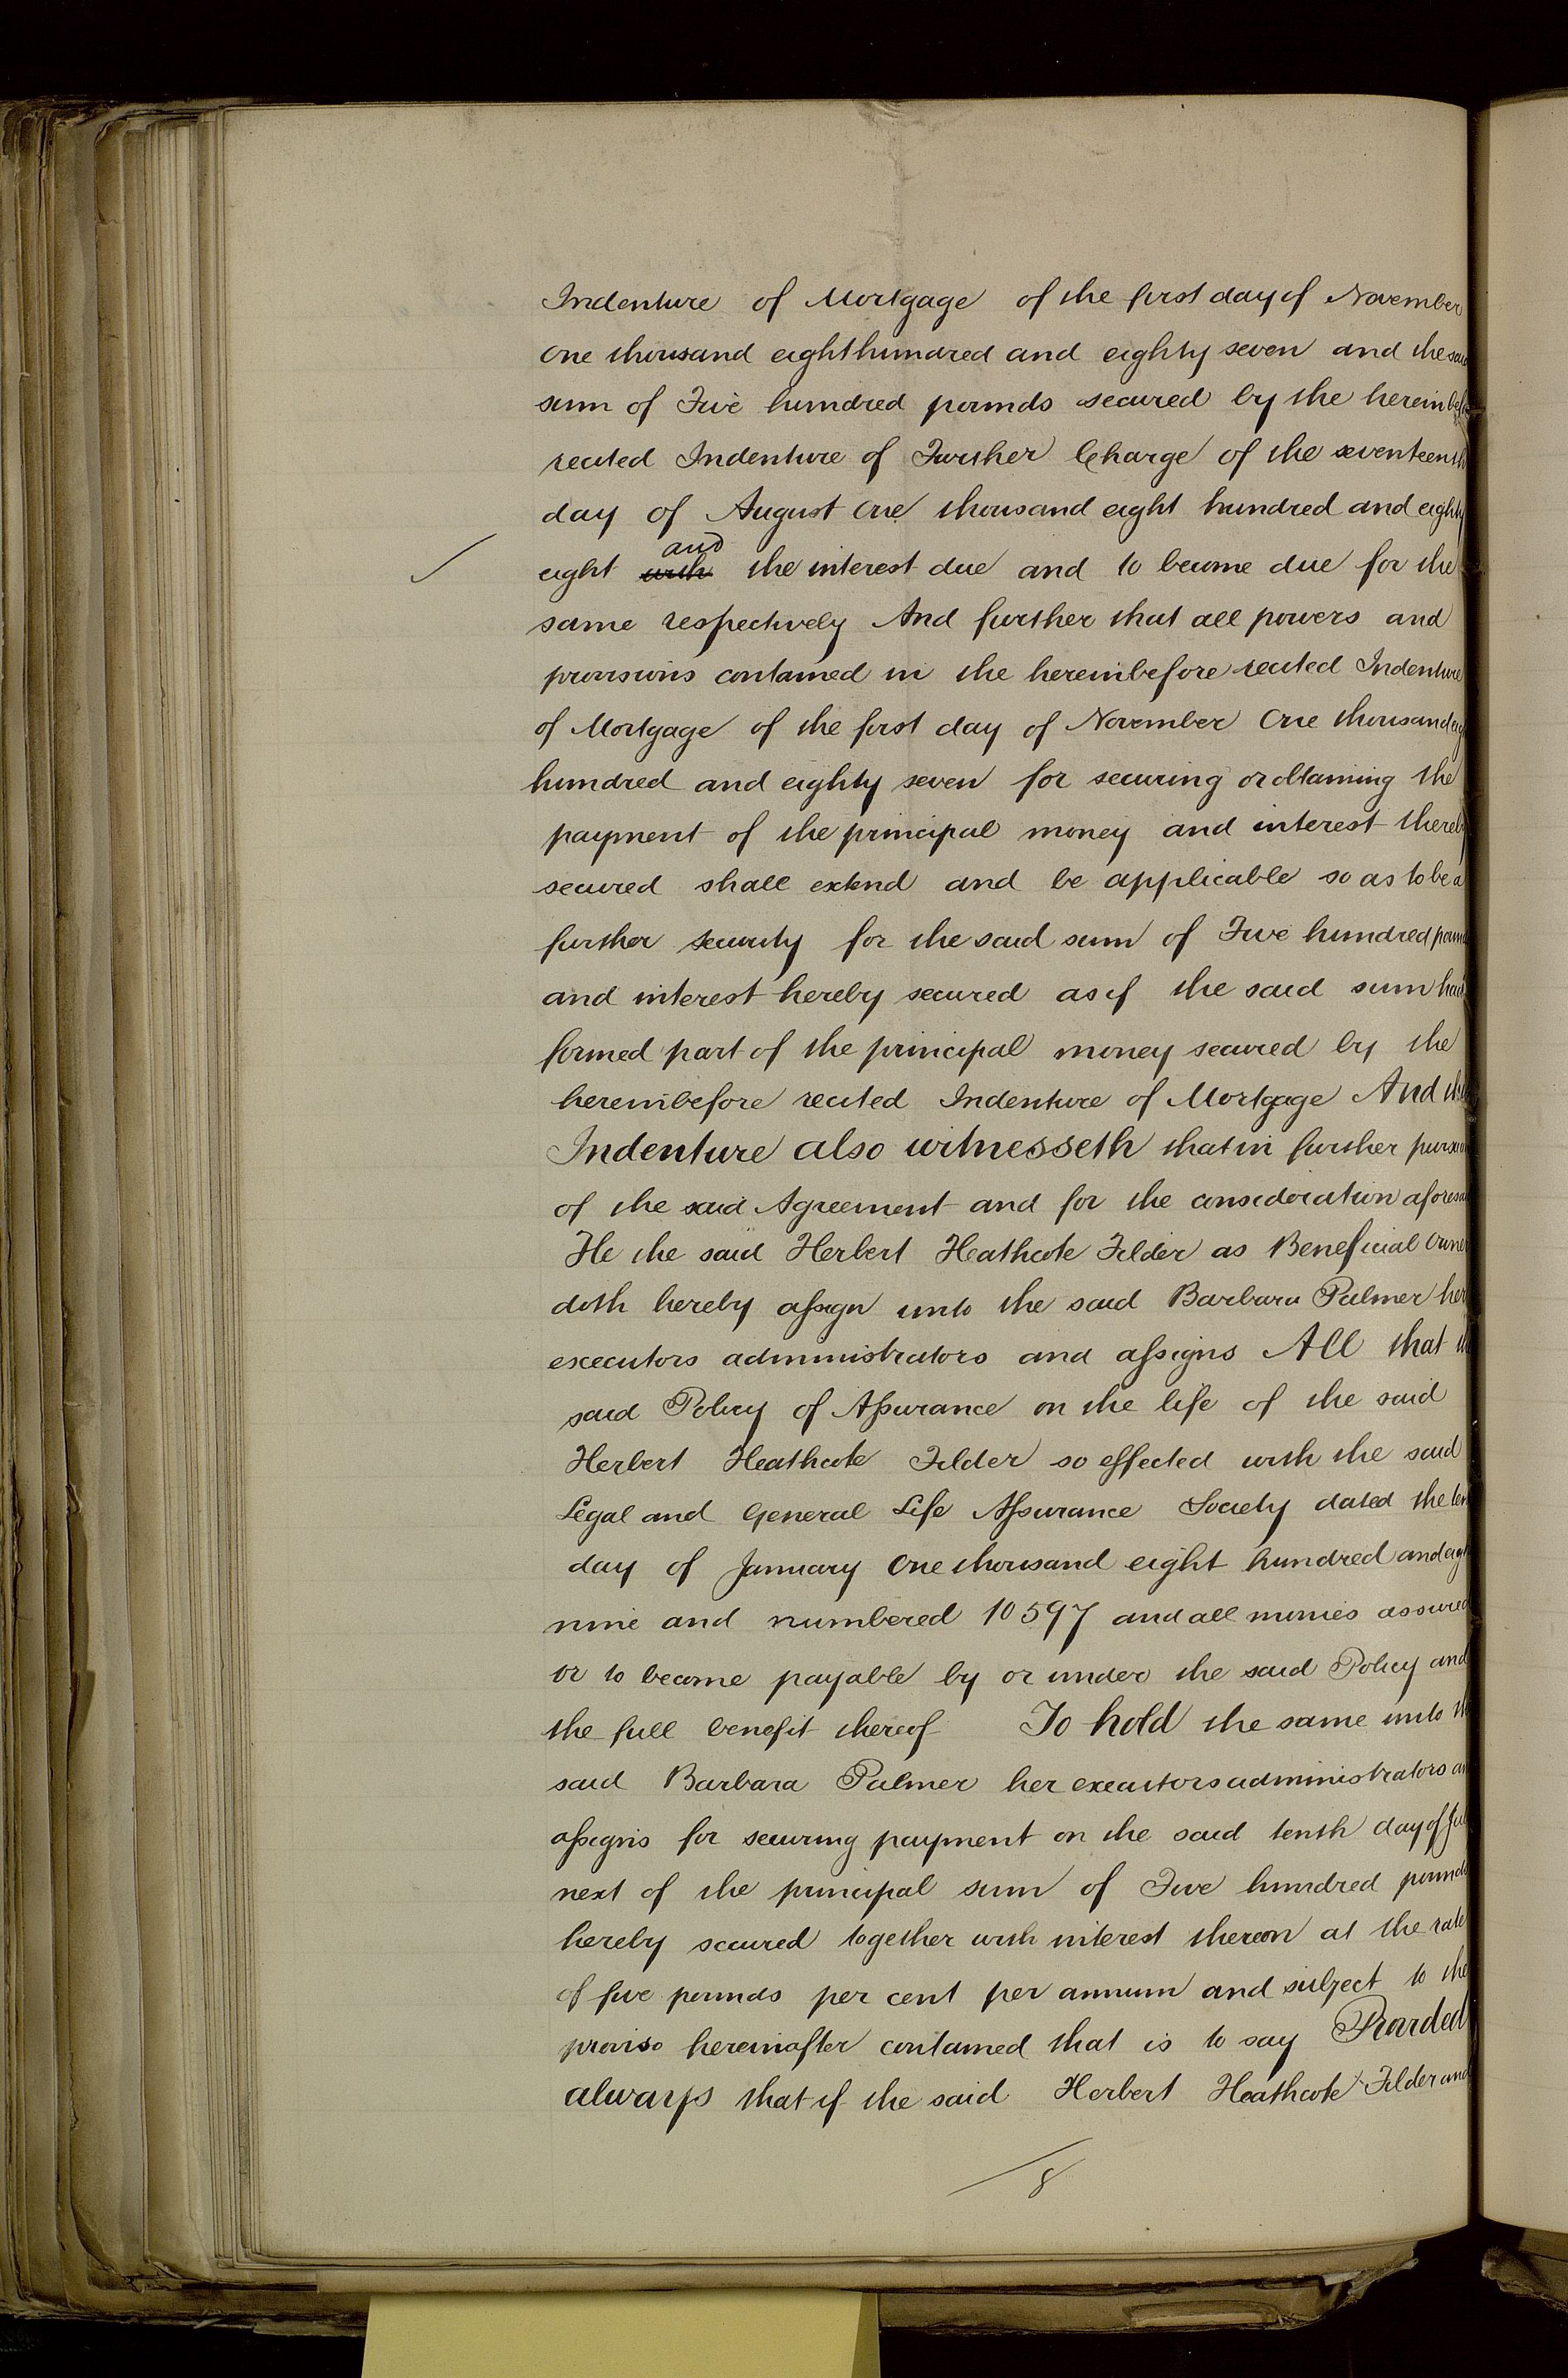 Indenture of Mortgage of the first day of November
One thousand eight hundred and eighty seven and the said
sum of Five hundred pounds secured by the herein
recited Indenture of Further Charge of the seventeenth
day of August One thousand eight hundred and eighty
and
eight with the interest due and to become due for the
same respectively And further that all powers and
provisions contained in the hereinbefore recited Indenture
of Mortgage of the first day of November One thousand
hundred and eighty seven for securing or obtaining the
payment of the principal money and interest thereby
secured shall extend and be applicable so as to be a
further security for the said sum of Five hundred
and interest hereby secured as if the said sum had
formed part of the principal money secured by the
hereinbefore recited Indenture of Mortgage And
Indenture also witnesseth that in further
of the said Agreement and for the consideration
He the said Herbert Heathcote Filder as Beneficial Owner
doth hereby assign unto the said Barbara Palmer her
executors administrators and assigns All that
said Policy of Assurance on the life of the said
Herbert Heathcote Filder so effected with the said
Legal and General Life Assurance Society dated the
day of January One thousand eight hundred and
nine and numbered 10597 and all monies assured
or to become payable by or under the said Policy and
the full benefit thereof To hold the same unto
said Barbara Palmer her executors administrators
assigns for securing payment on the said tenth day of
next of the principal sum of Five hundred pounds
hereby secured together with interest thereon at the rate
of five pounds per cent per annum and subject to the
proviso hereinafter contained that is to say Provided
always that if the said Herbert Heathcote Filder and
8